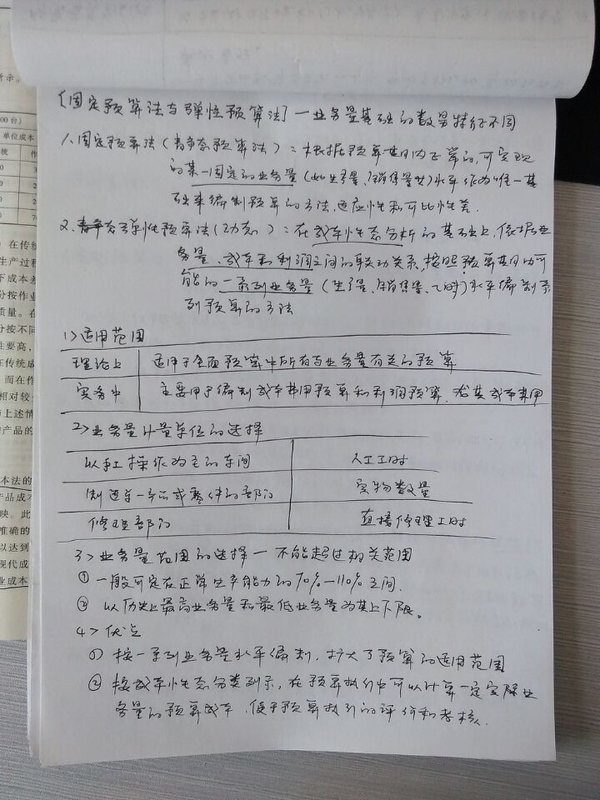 [固定预算法与弹性预算法]—业务量基础的数量特征不同
1.固定预算法(静态预算法):根据预算期内正常的,可实现
的某一固定的业务量(如生产量、销售量)水平作为唯一基
础来编制预算的方法.适应性和可比性差.
2.弹性预算法(动态):在成本性态分析的基础上,依据业
务量、成本和利润之间的联动关系,按照预算期内可
能的一系列业务量(生产量、销售量、工时)水平编制系
列预算的方法
1>适用范围
理论上 适用于全面预算中所有与业务量有关的预算
实务中 主要用于编制成本费用预算和利润预算,尤其成本费用
2>业务量计量单位的选择
以手工操作为主的车间 人工工时
制造单一产品或零件的部门 实物数量
修理部门 直接修理工时
3>业务量范围的选择—不能超过相关范围
① 一般可定在正常生产能力的70%—110%之间.
② 以历史上最高业务量和最低业务量为其上下限。
4>优点
① 按一系列业务量水平编制,扩大了预算的适用范围
② 按成本性态分类列示,在预算执行中可以计算一定实际业
务量的预算成本,便于预算执行的评价和考核.
00台)
单位成本
)在传统
生产过程
下成本差
分按作业
质量。在
分按不同
性要高,
在传统成
而在作
相对较
与上述情
中产品的
本法的
产品成
映,此
准确的
以达到
现代成
业成本